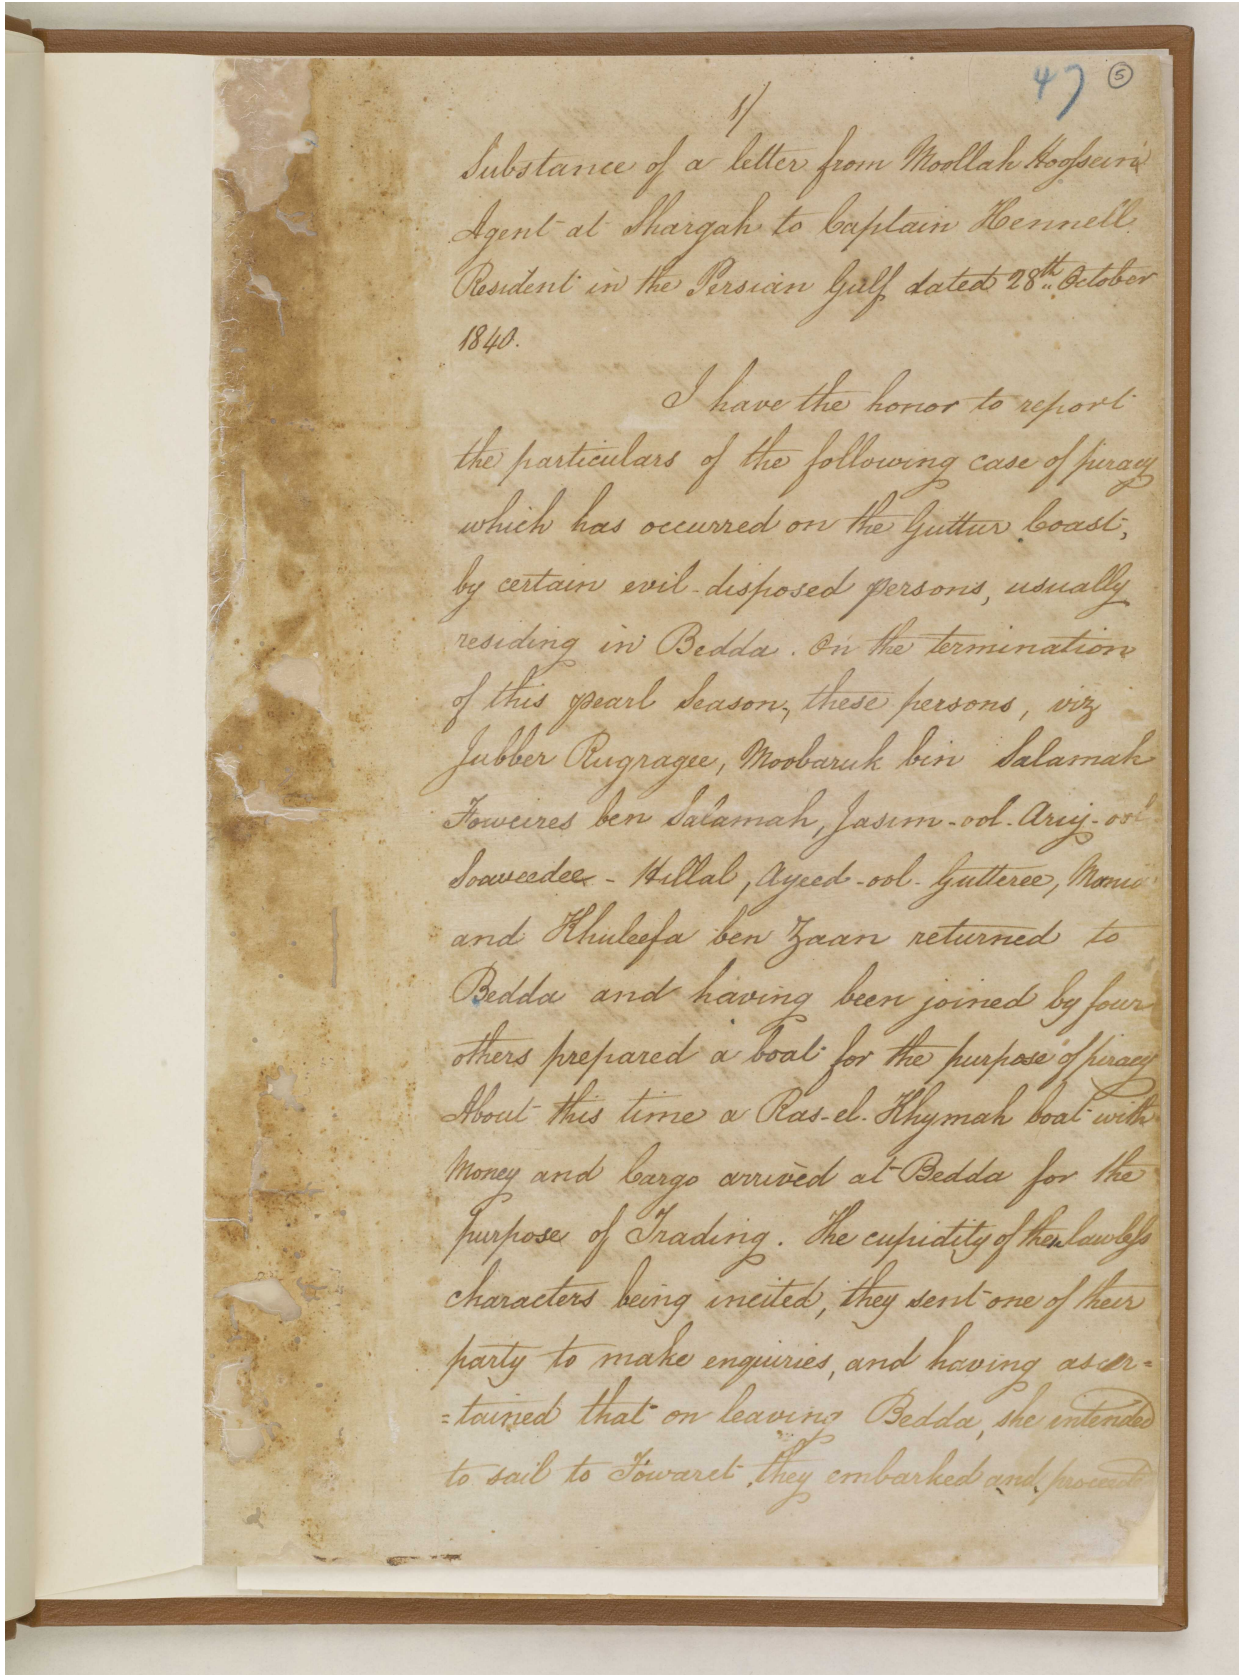 47 5
1/
Substance of a letter from Moollah Hoossein
Agent at Shargah to Captain Hennell
Resident in the Persian Gulf dated 28th October
1840.
I have the honor to report
the particulars of the following case of piracy
which has occurred on the Guttur Coast,
by certain evil-disposed persons, usually
residing in Bedda. On the termination
of this pearl Season, these persons, viz
Jubber Rugragee, Moobaruk bin Salamah
Foweires ben Salamah, Jasim-ool-Arij-ool
Soaveedee - Hillal, Ayeed-ool-Gutteree,
and Khuleefa ben Zaan returned to
Bedda and having been joined by four
others prepared a boat for the purpose of piracy
About this time a Ras-el-Khymah boat with
Money and Cargo arrived at Bedda for the
purpose of Trading. The cupidity of these lawless
characters being incited, they sent one of their
party to make enquiries, and having ascer=
=tained that on leaving Bedda, she intended
to sail to Fowaret they embarked and